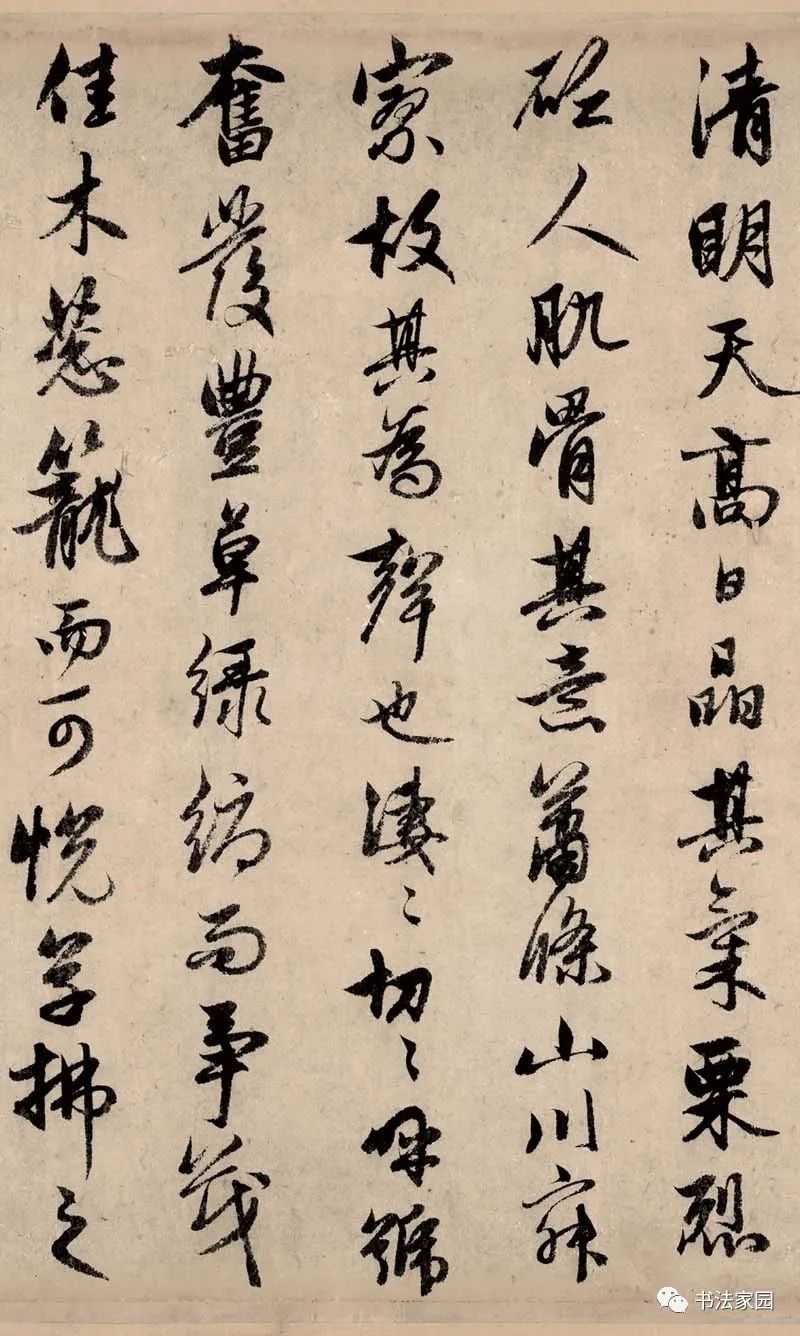 清明天高日晶其氣栗烈
砭人肌骨其意蕭條山川寂
寥故其為聲也淒〻切〻呼號
奮發豐草綠縟而爭茂
佳木蔥籠而可悅草拂之
书法家园